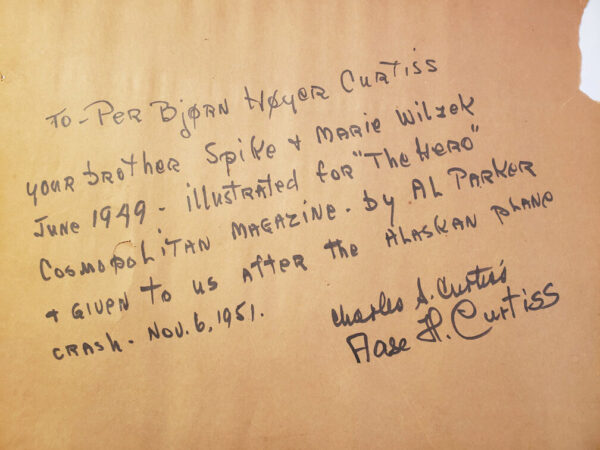 TO - PER BJØRN HØYER CURTISS
your brother Spike & MARIE Wilzek
June 1949 - illustrated for "The Hero"
COSMOPOLITAN MAGAZINE - by AL PARKER
& GIVEN to us AFTER the ALASKAN plane
CRASH - NOV. 6, 1951.
Charles S. Curtiss
Aase H. Curtiss